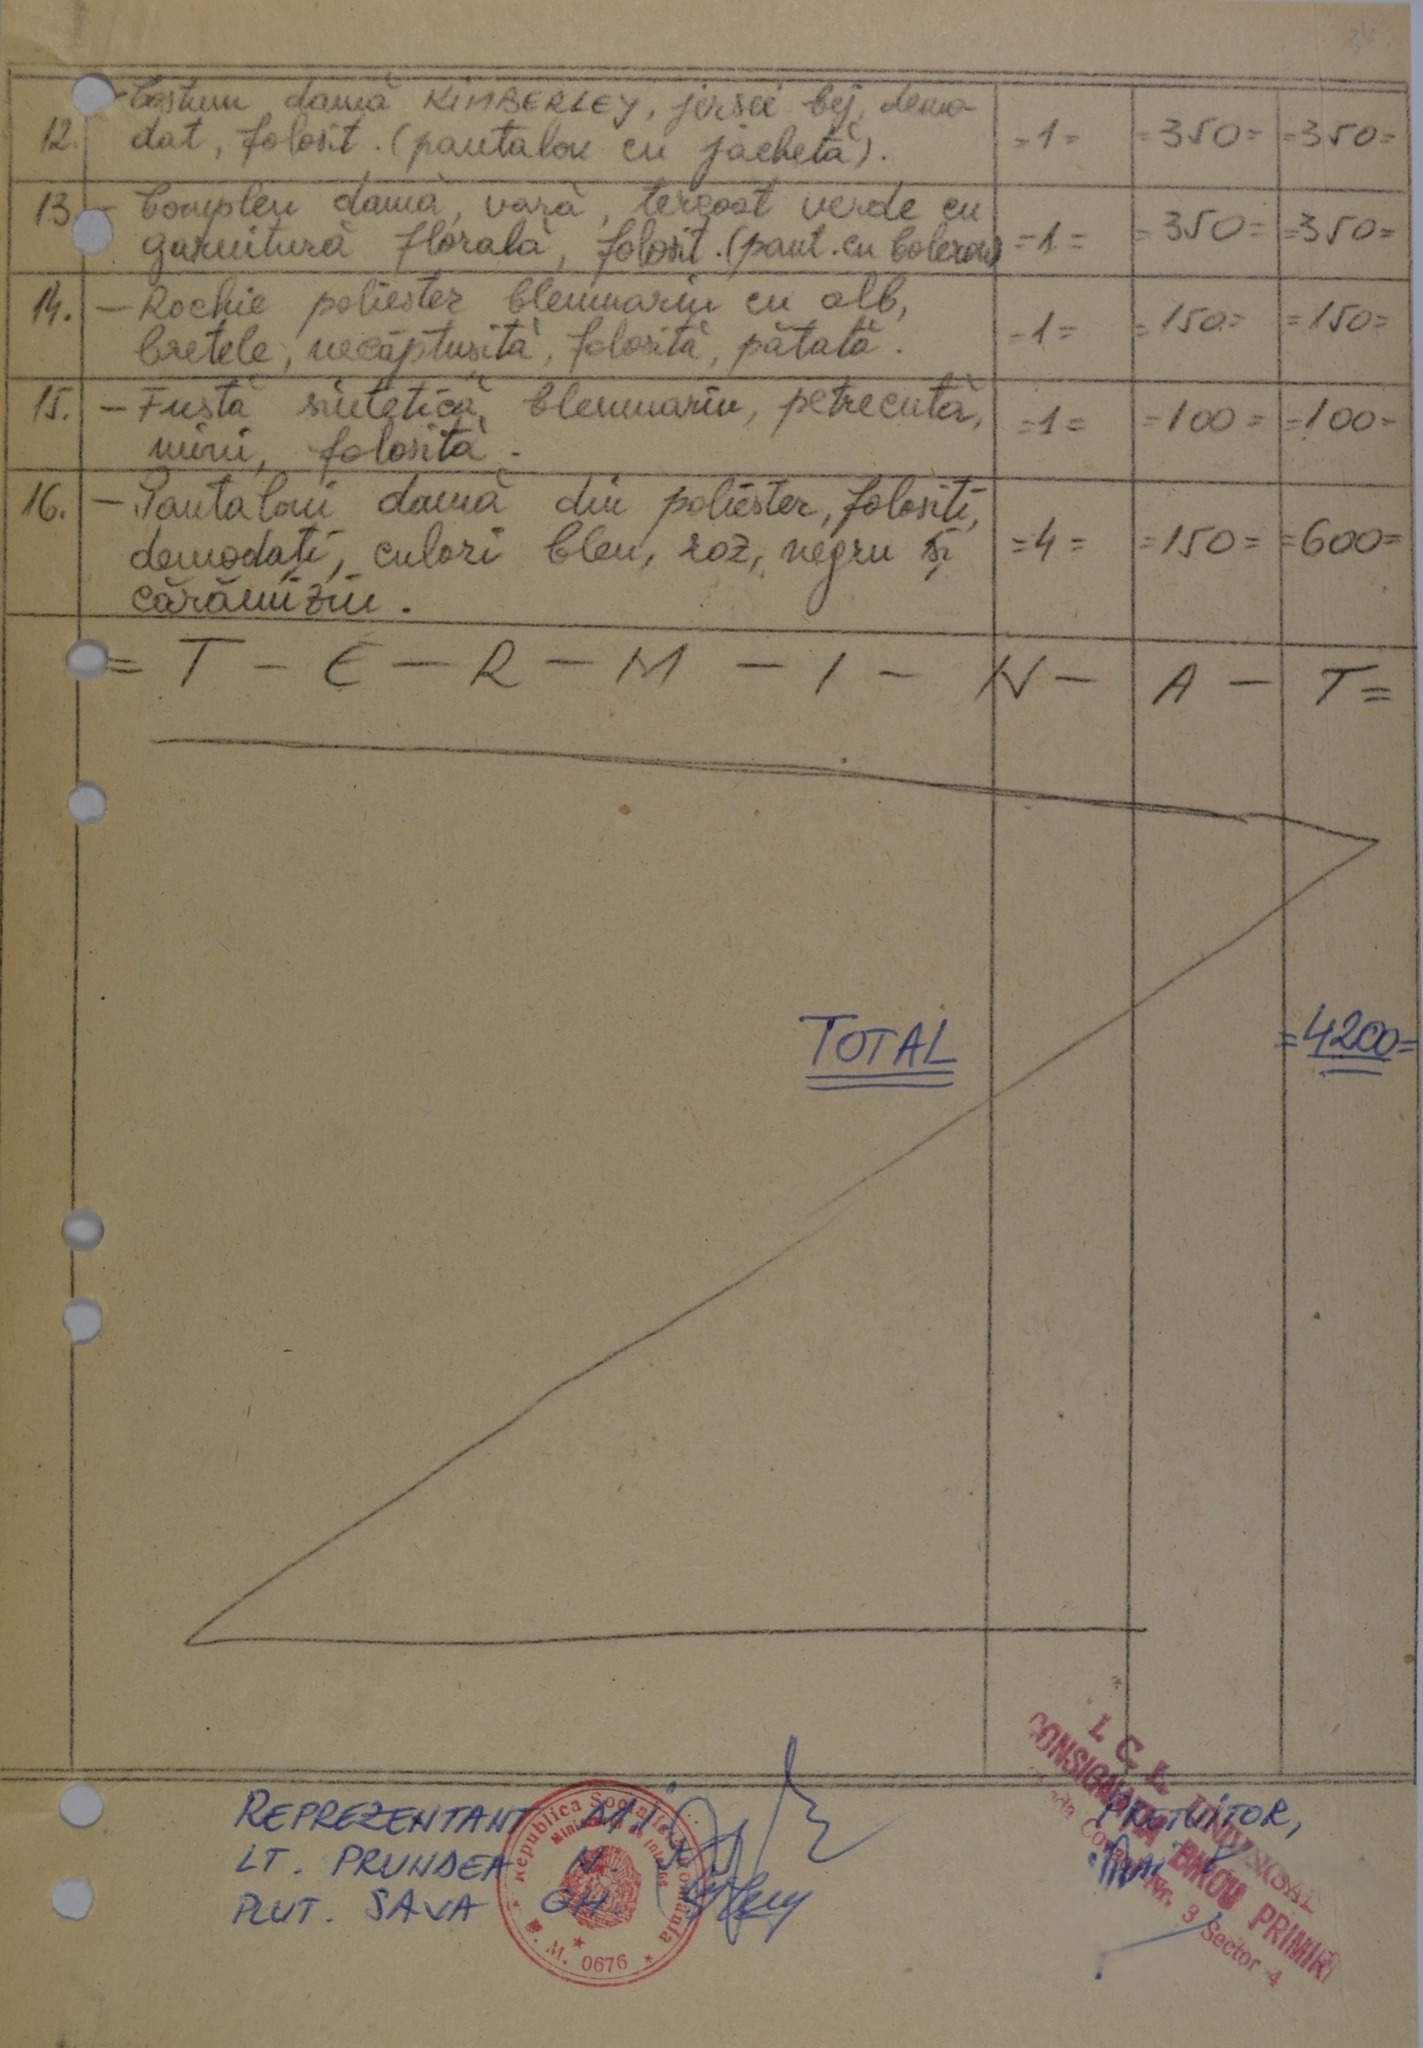 12. - Costum damă KIMBERLEY, jersee bej, demo
dat, folosit. (pantalon cu jachetă). =1= =350= =350=
13 - Compleu damă, vară, tercoat verde cu
garnitură florală, folosit. (pant. cu bolerou) =1= =350= =350=
14. - Rochie poliester bleumarin cu alb,
bretele, necăptușită, folosită, pătată. =1= =150= =150=
15. - Fustă sintetică bleumarin, petrecută,
mini, folosită. =1= =100= =100=
16. - Pantaloni damă din poliester, folosiți,
demodați, culori bleu, roz, negru și
cărămiziu. =4= =150= =600=
= T - E - R - M - I - N - A - T =
TOTAL =4200=
REPREZENTANT M.I.
LT. PRUNDEA N.
PLUT. SAVA GH.
Republica Socialistă România
Ministerul de Interne
U. M. 0676
PREȚUITOR,
I. C. L.
CONSIGNAȚIA
PRIMIRI
Nr. 3 Sector 4